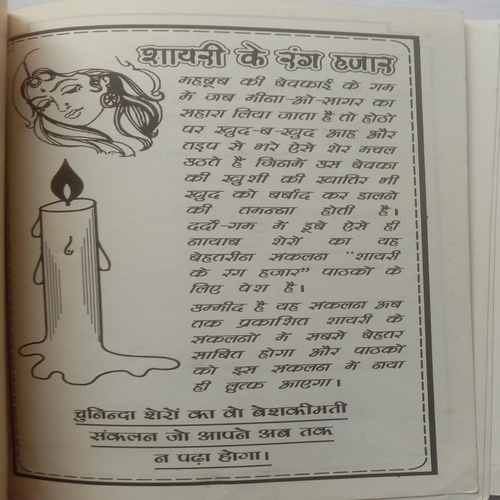 शायरी के रंग हजार
महबूब की बेवफाई के गम
में जब मीना-ओ-सागर का
सहारा लिया जाता है तो होठों
पर खुद-ब-खुद आह और
तड़प से भरे ऐसे शेर मचल
उठते हैं जिनमें उस बेवफा
की खुशी की खातिर भी
खुद को बर्बाद कर डालने
की तमन्ना होती है।
दर्दो-गम में डूबे ऐसे ही
नायाब शेरों का यह
बेहतरीन संकलन "शायरी
के रंग हजार" पाठकों के
लिए पेश है।
उम्मीद है यह संकलन अब
तक प्रकाशित शायरी के
संकलनों में सबसे बेहतर
साबित होगा और पाठकों
को इस संकलन में नया
ही लुत्फ आएगा।
चुनिन्दा शेरों का वो बेशकीमती
संकलन जो आपने अब तक
न पढ़ा होगा।